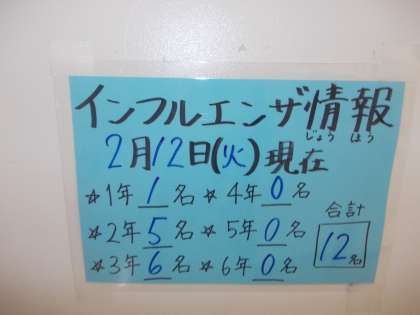 インフルエンザ情報
じょうほう
2月12日(火)現在
☆1年 1名 ☆4年 0名
合計
☆2年 5名 ☆5年 0名
12名
☆3年 6名 ☆6年 0名